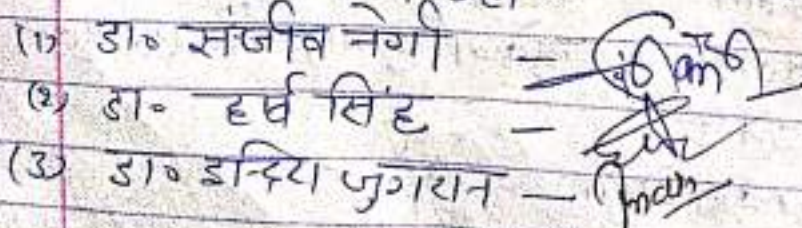 (1) डा० संजीव नेगी -
(2) डा० हर्ष सिंह -
(3) डा० इन्दिरा जुगरान -